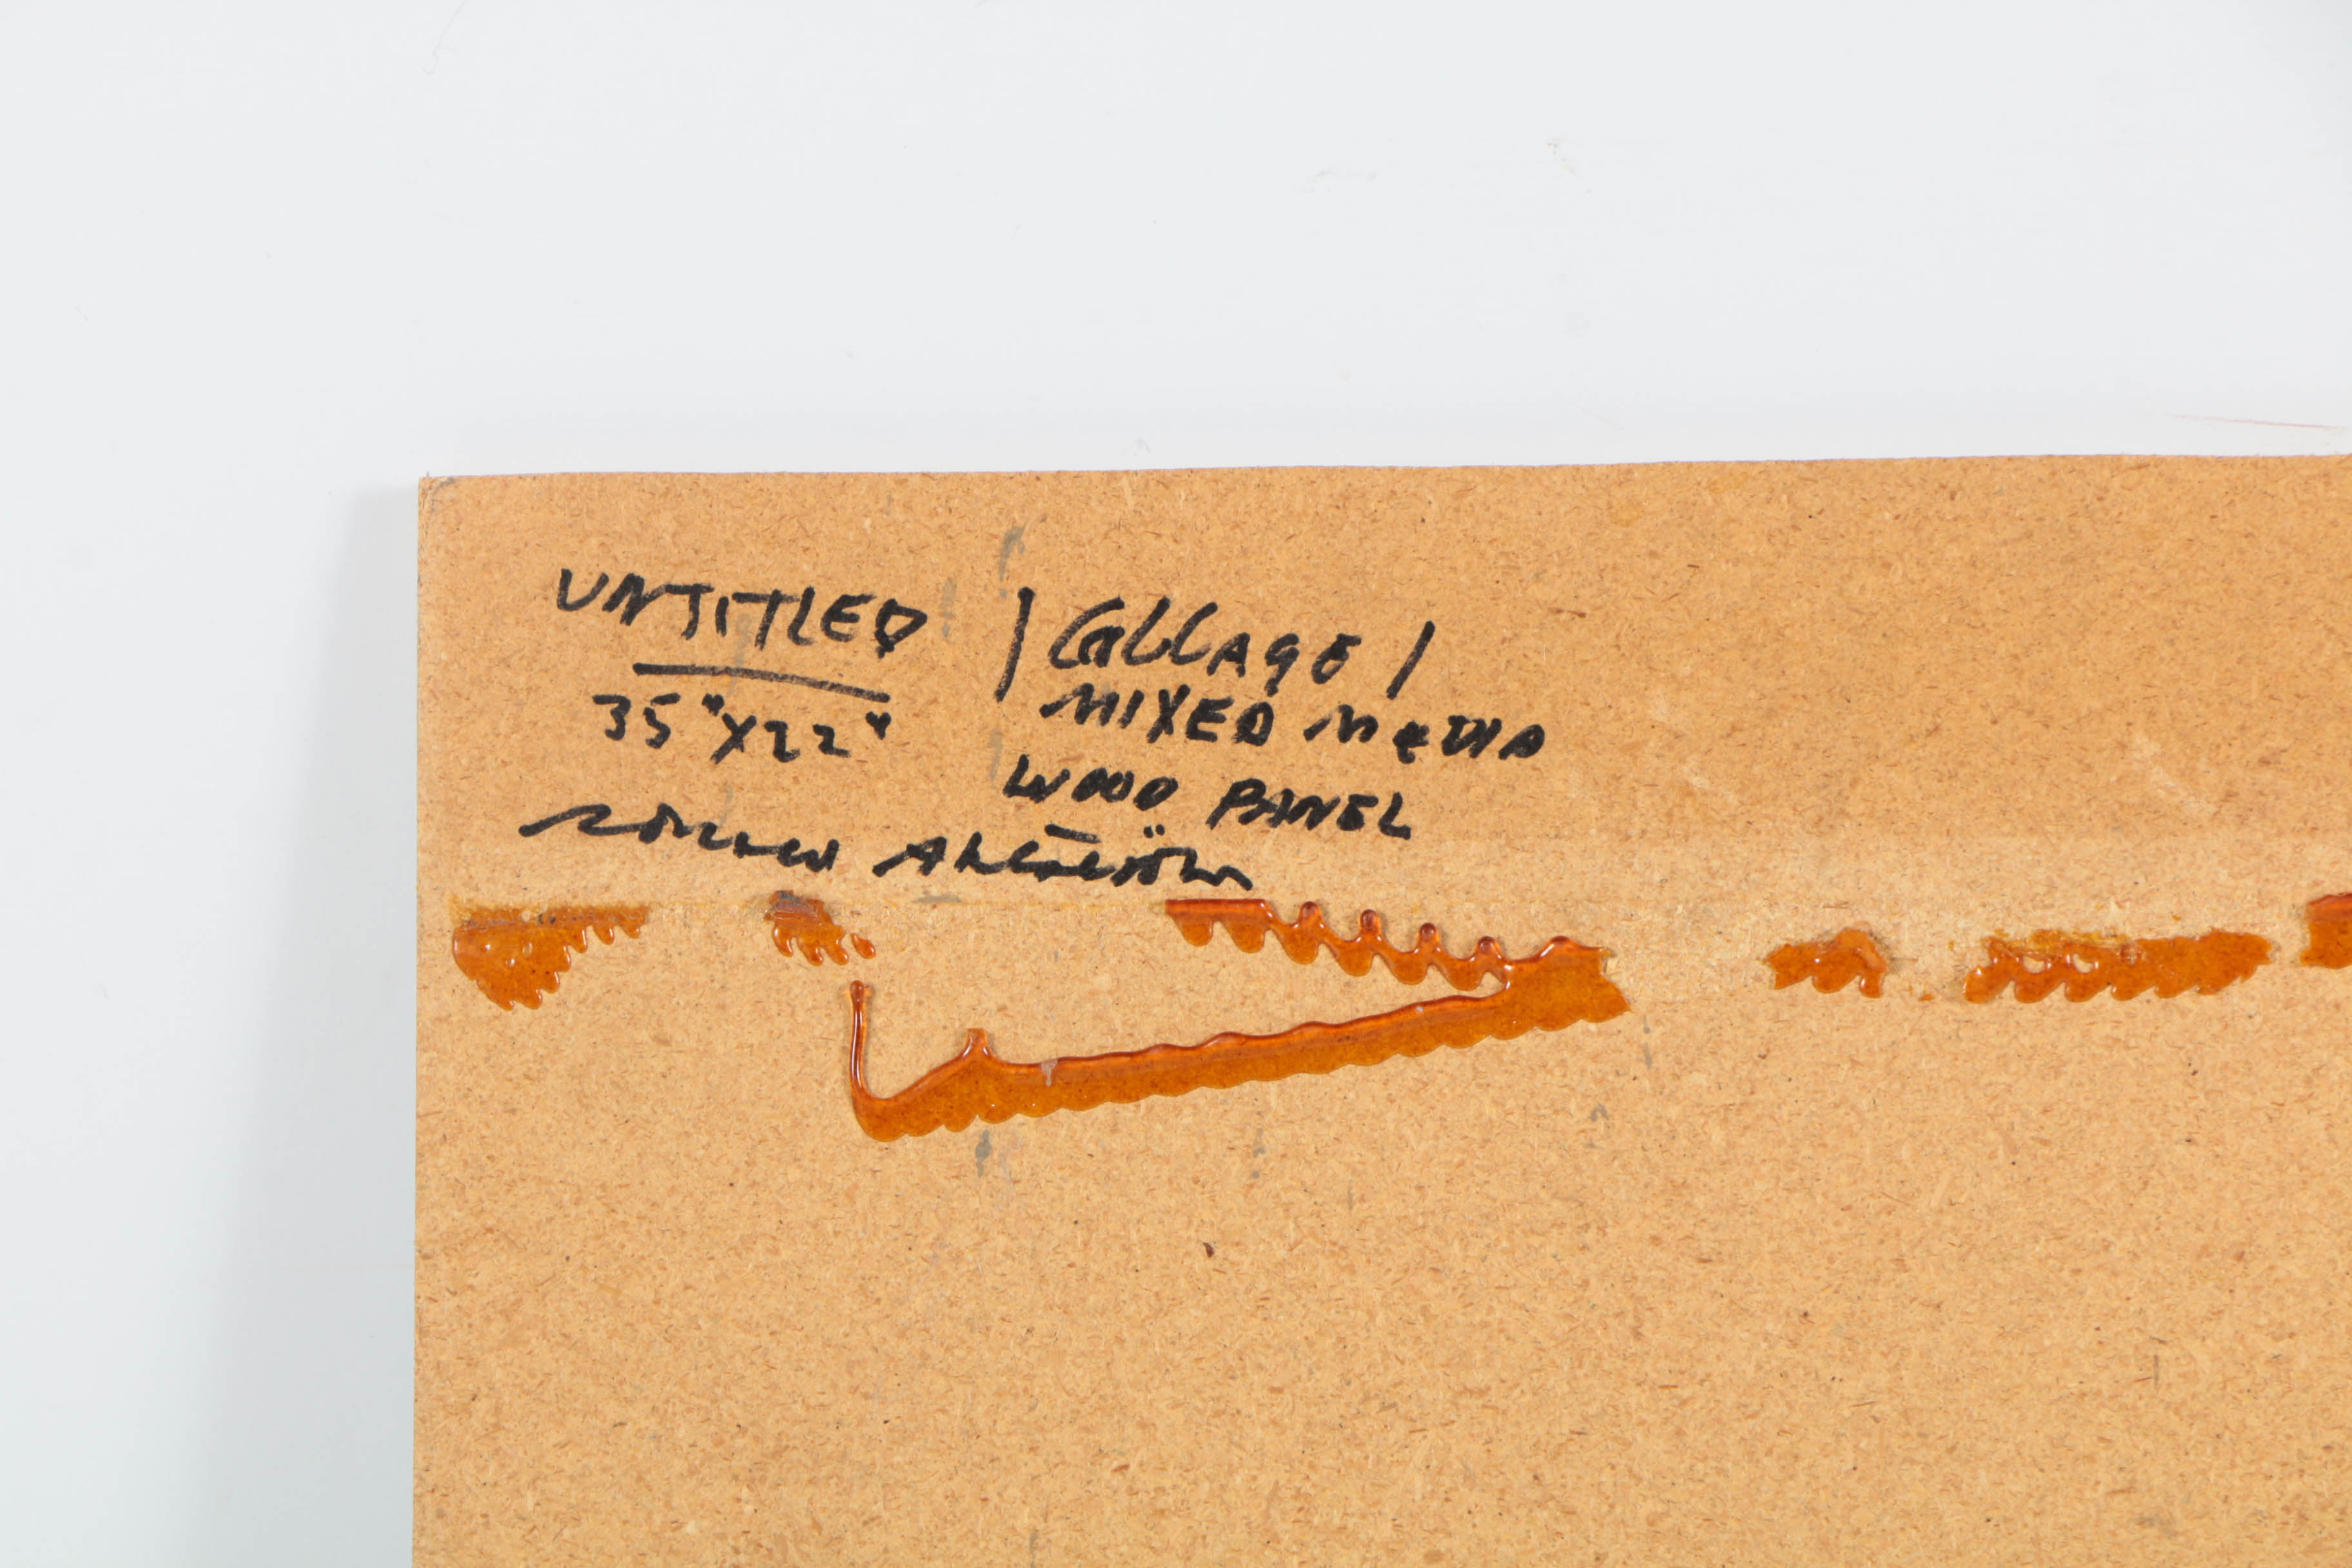 UNTITLED / COLLAGE /
35"X22" MIXED MEDIA
WOOD PANEL
Ronald Ahlström